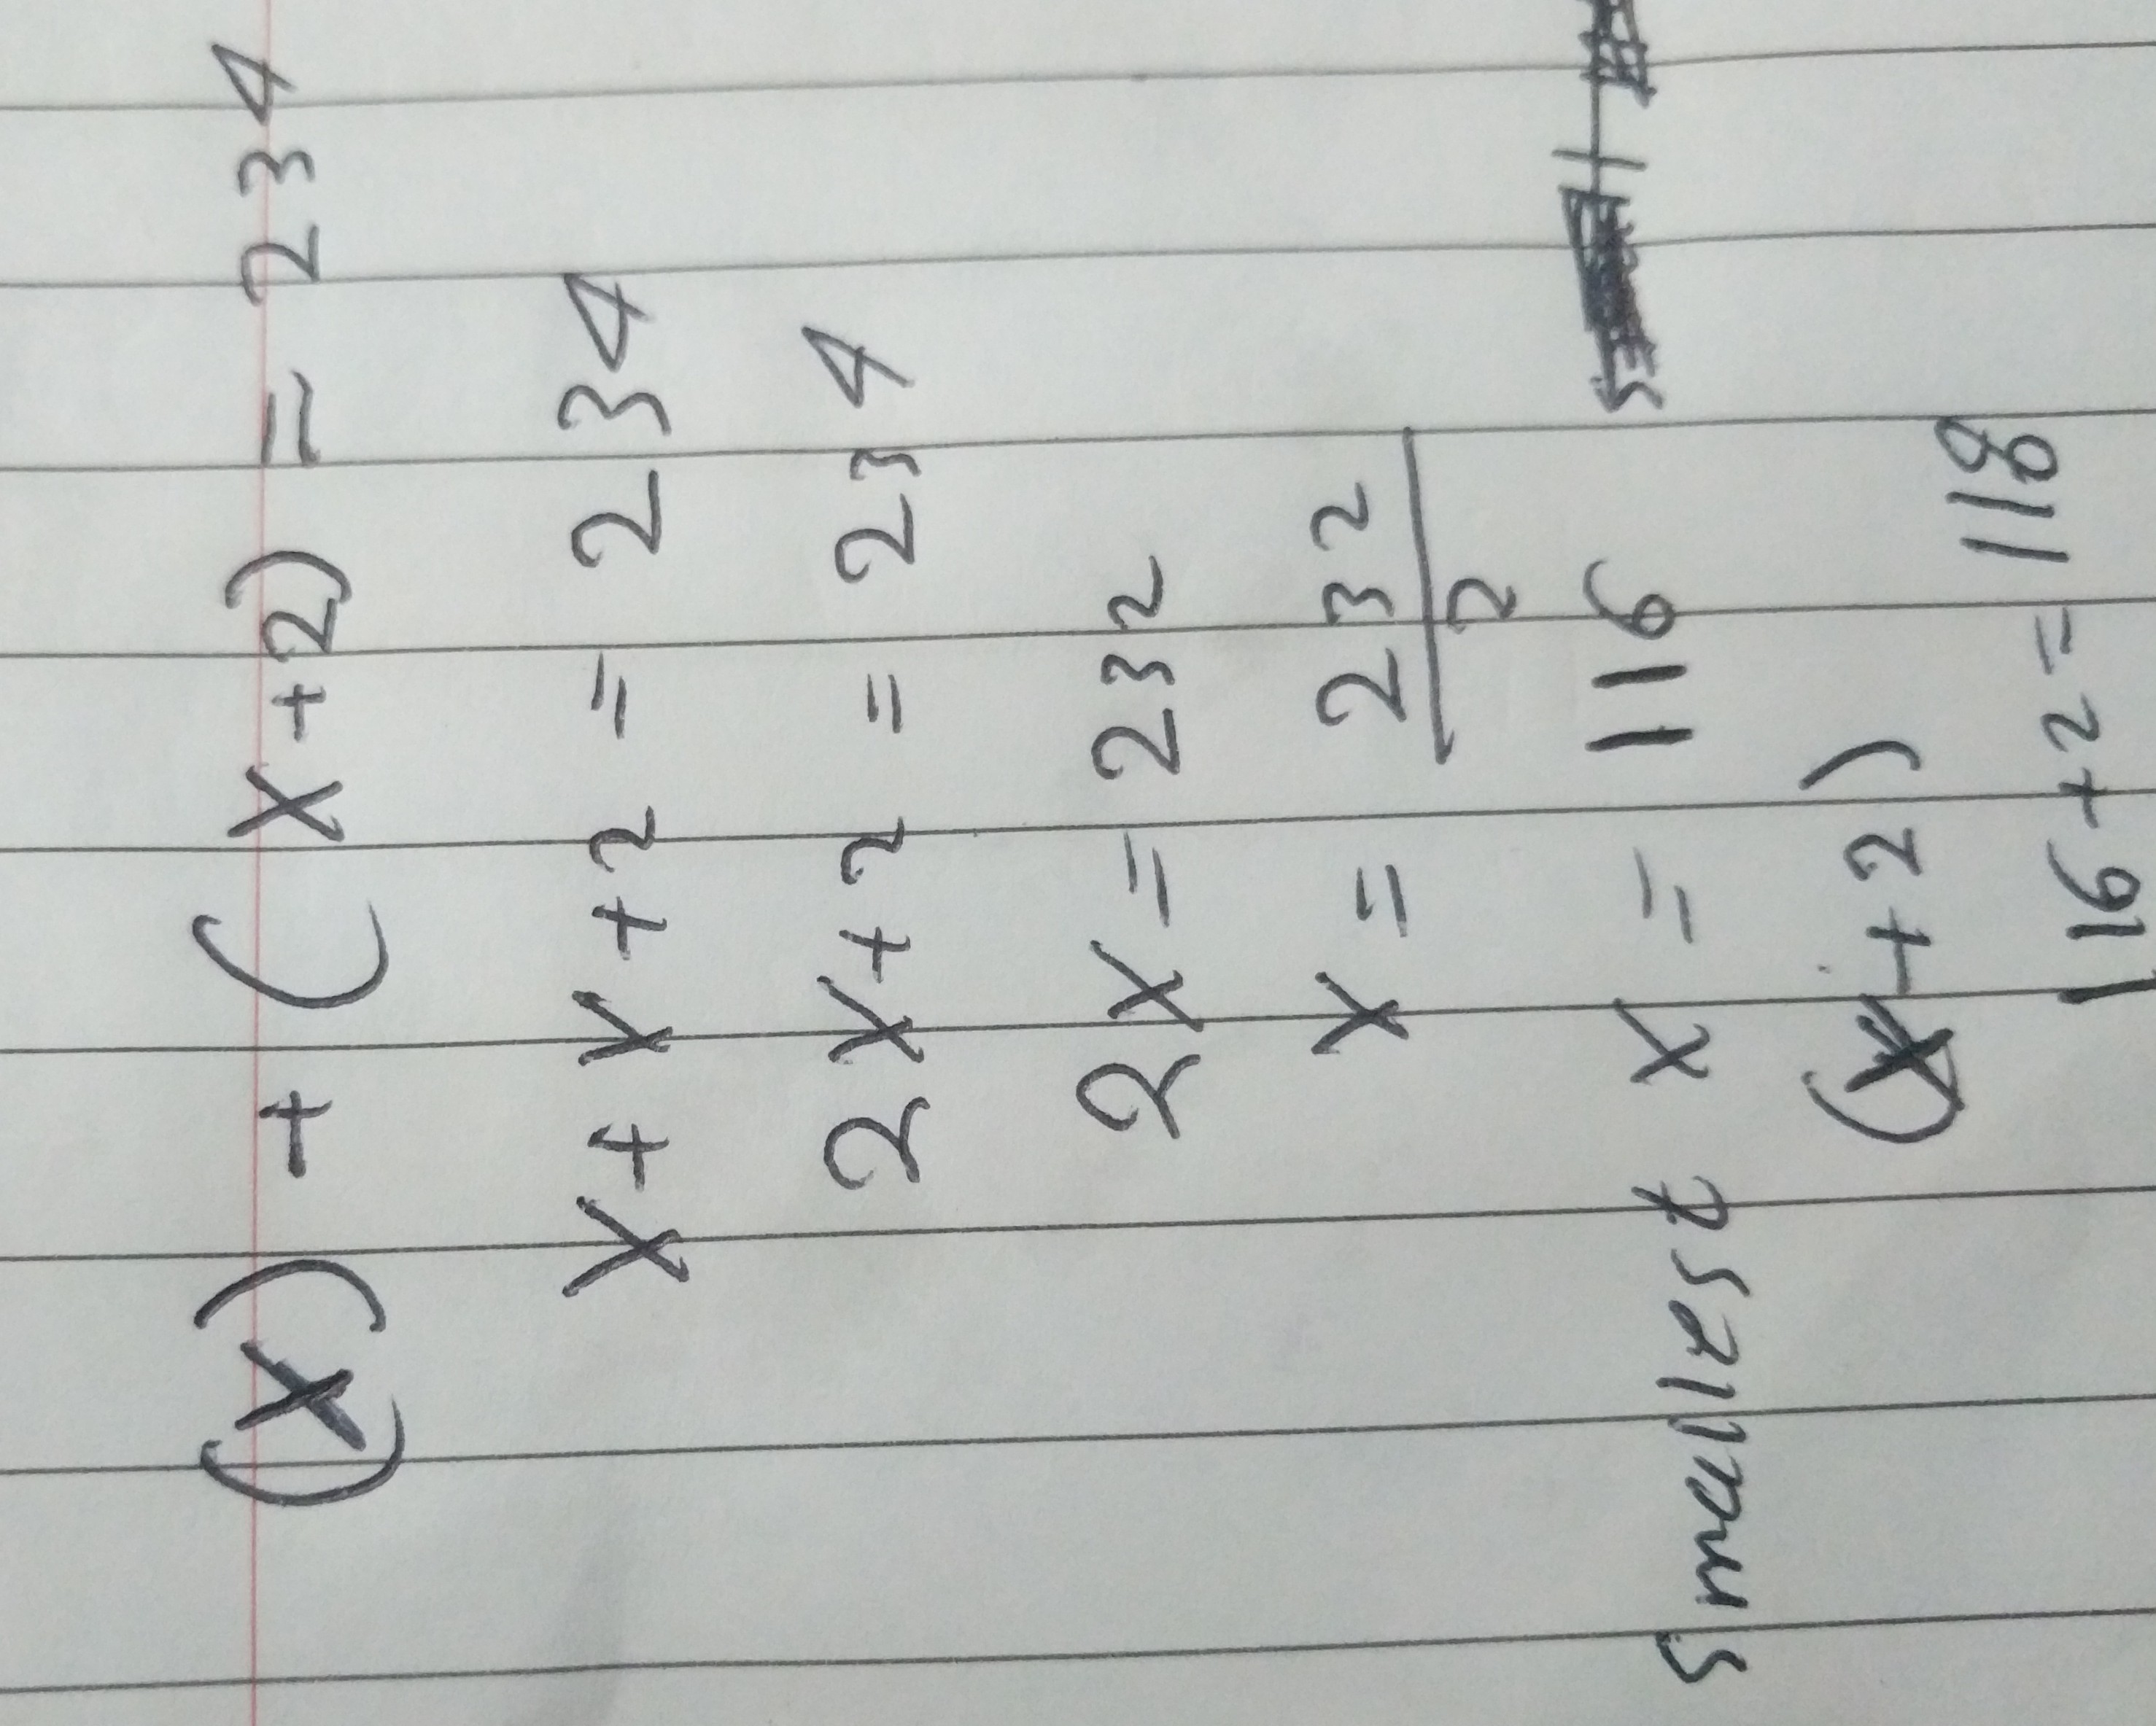 (x) + (x+2) = 234
x+x+2 = 234
2x+2 = 234
2x = 232
x = 232/2
smallest x = 116
(x+2)
116+2= 118